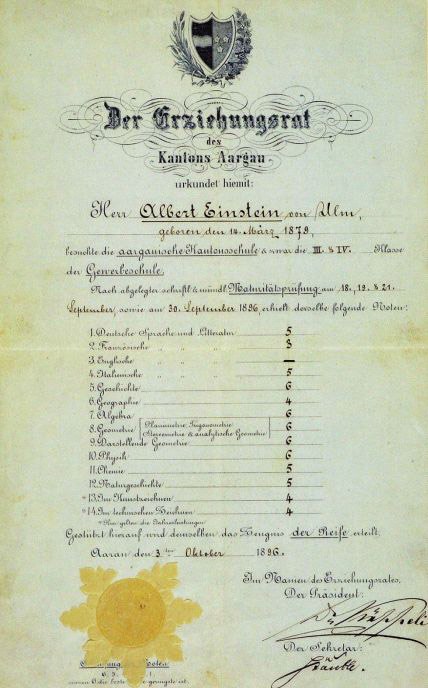 Der Erziehungsrat
des
Kantons Aargau
urkundet hiemit:
Herr Albert Einstein von Ulm,
geboren den 14. März 1879,
besuchte die aargauische Kantonsschule & zwar die III. & IV. Klasse
der Gewerbeschule.
Nach abgelegter schriftl. & mündl. Maturitätsprüfung am 18., 19. & 21.
September, sowie am 30. September 1896, erhielt derselbe folgende Noten:
1. Deutsche Sprache und Litteratur 5
2. Französische „ „ „ 3
3. Englische „ „ „ —
4. Italienische „ „ „ 5
5. Geschichte 6
6. Geographie 4
7. Algebra 6
8. Geometrie (Planimetrie, Trigonometrie 6
Stereometrie & analytische Geometrie)
9. Darstellende Geometrie 6
10. Physik 6
11. Chemie 5
12. Naturgeschichte 5
*13. Im Kunstzeichnen 4
*14. Im technischen Zeichnen 4
*Hier gelten die Jahresleistungen.
Gestützt hierauf wird demselben das Zeugnis der Reife erteilt.
Aarau den 3ten Oktober 1896.
Im Namen des Erziehungsrates,
Der Präsident:
Der Sekretär:
Noten
6. 5.
1.
6 die beste
geringste ist.